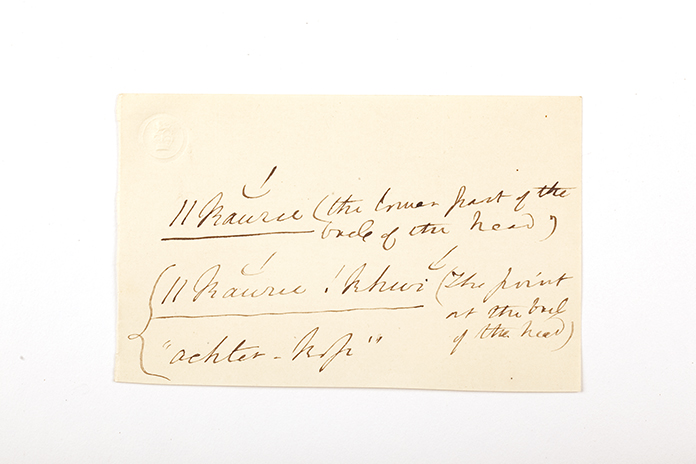 ||Kauree (the lower part of the
back of the head)
||Kauree !Khwi (The point
at the back
of the head)
"achter-kop"